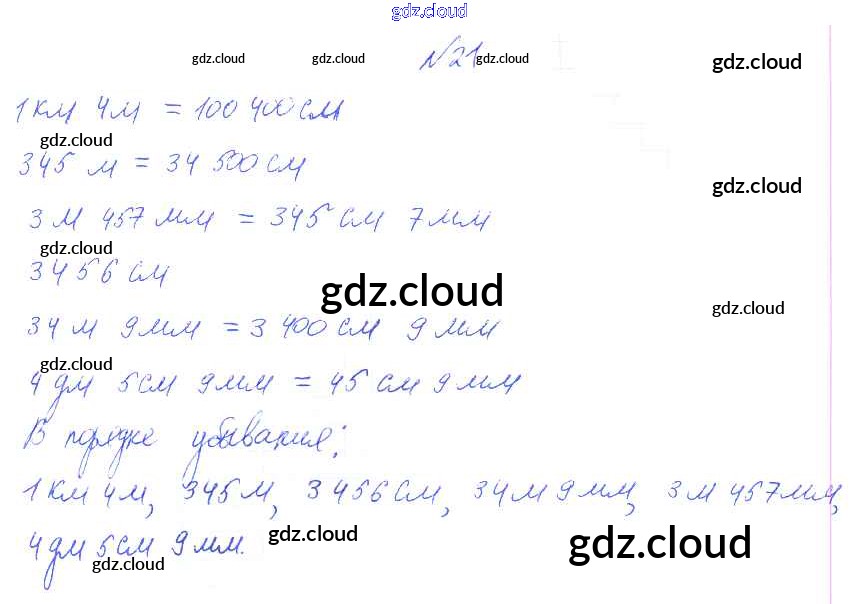 gdz.cloud
gdz.cloud gdz.cloud №21 gdz.cloud gdz.cloud
1км 4м = 100 400 см
gdz.cloud
345 м = 34 500 см
gdz.cloud
3 м 457 мм = 345 см 7 мм
gdz.cloud
3456 см
gdz.cloud gdz.cloud
34 м 9 мм = 3 400 см 9 мм
gdz.cloud
4 дм 5 см 9 мм = 45 см 9 мм
В порядке убывания:
1 км 4м, 345 м, 3 456 см, 34 м 9 мм, 3 м 457 мм,
4 дм 5 см 9 мм. gdz.cloud gdz.cloud
gdz.cloud